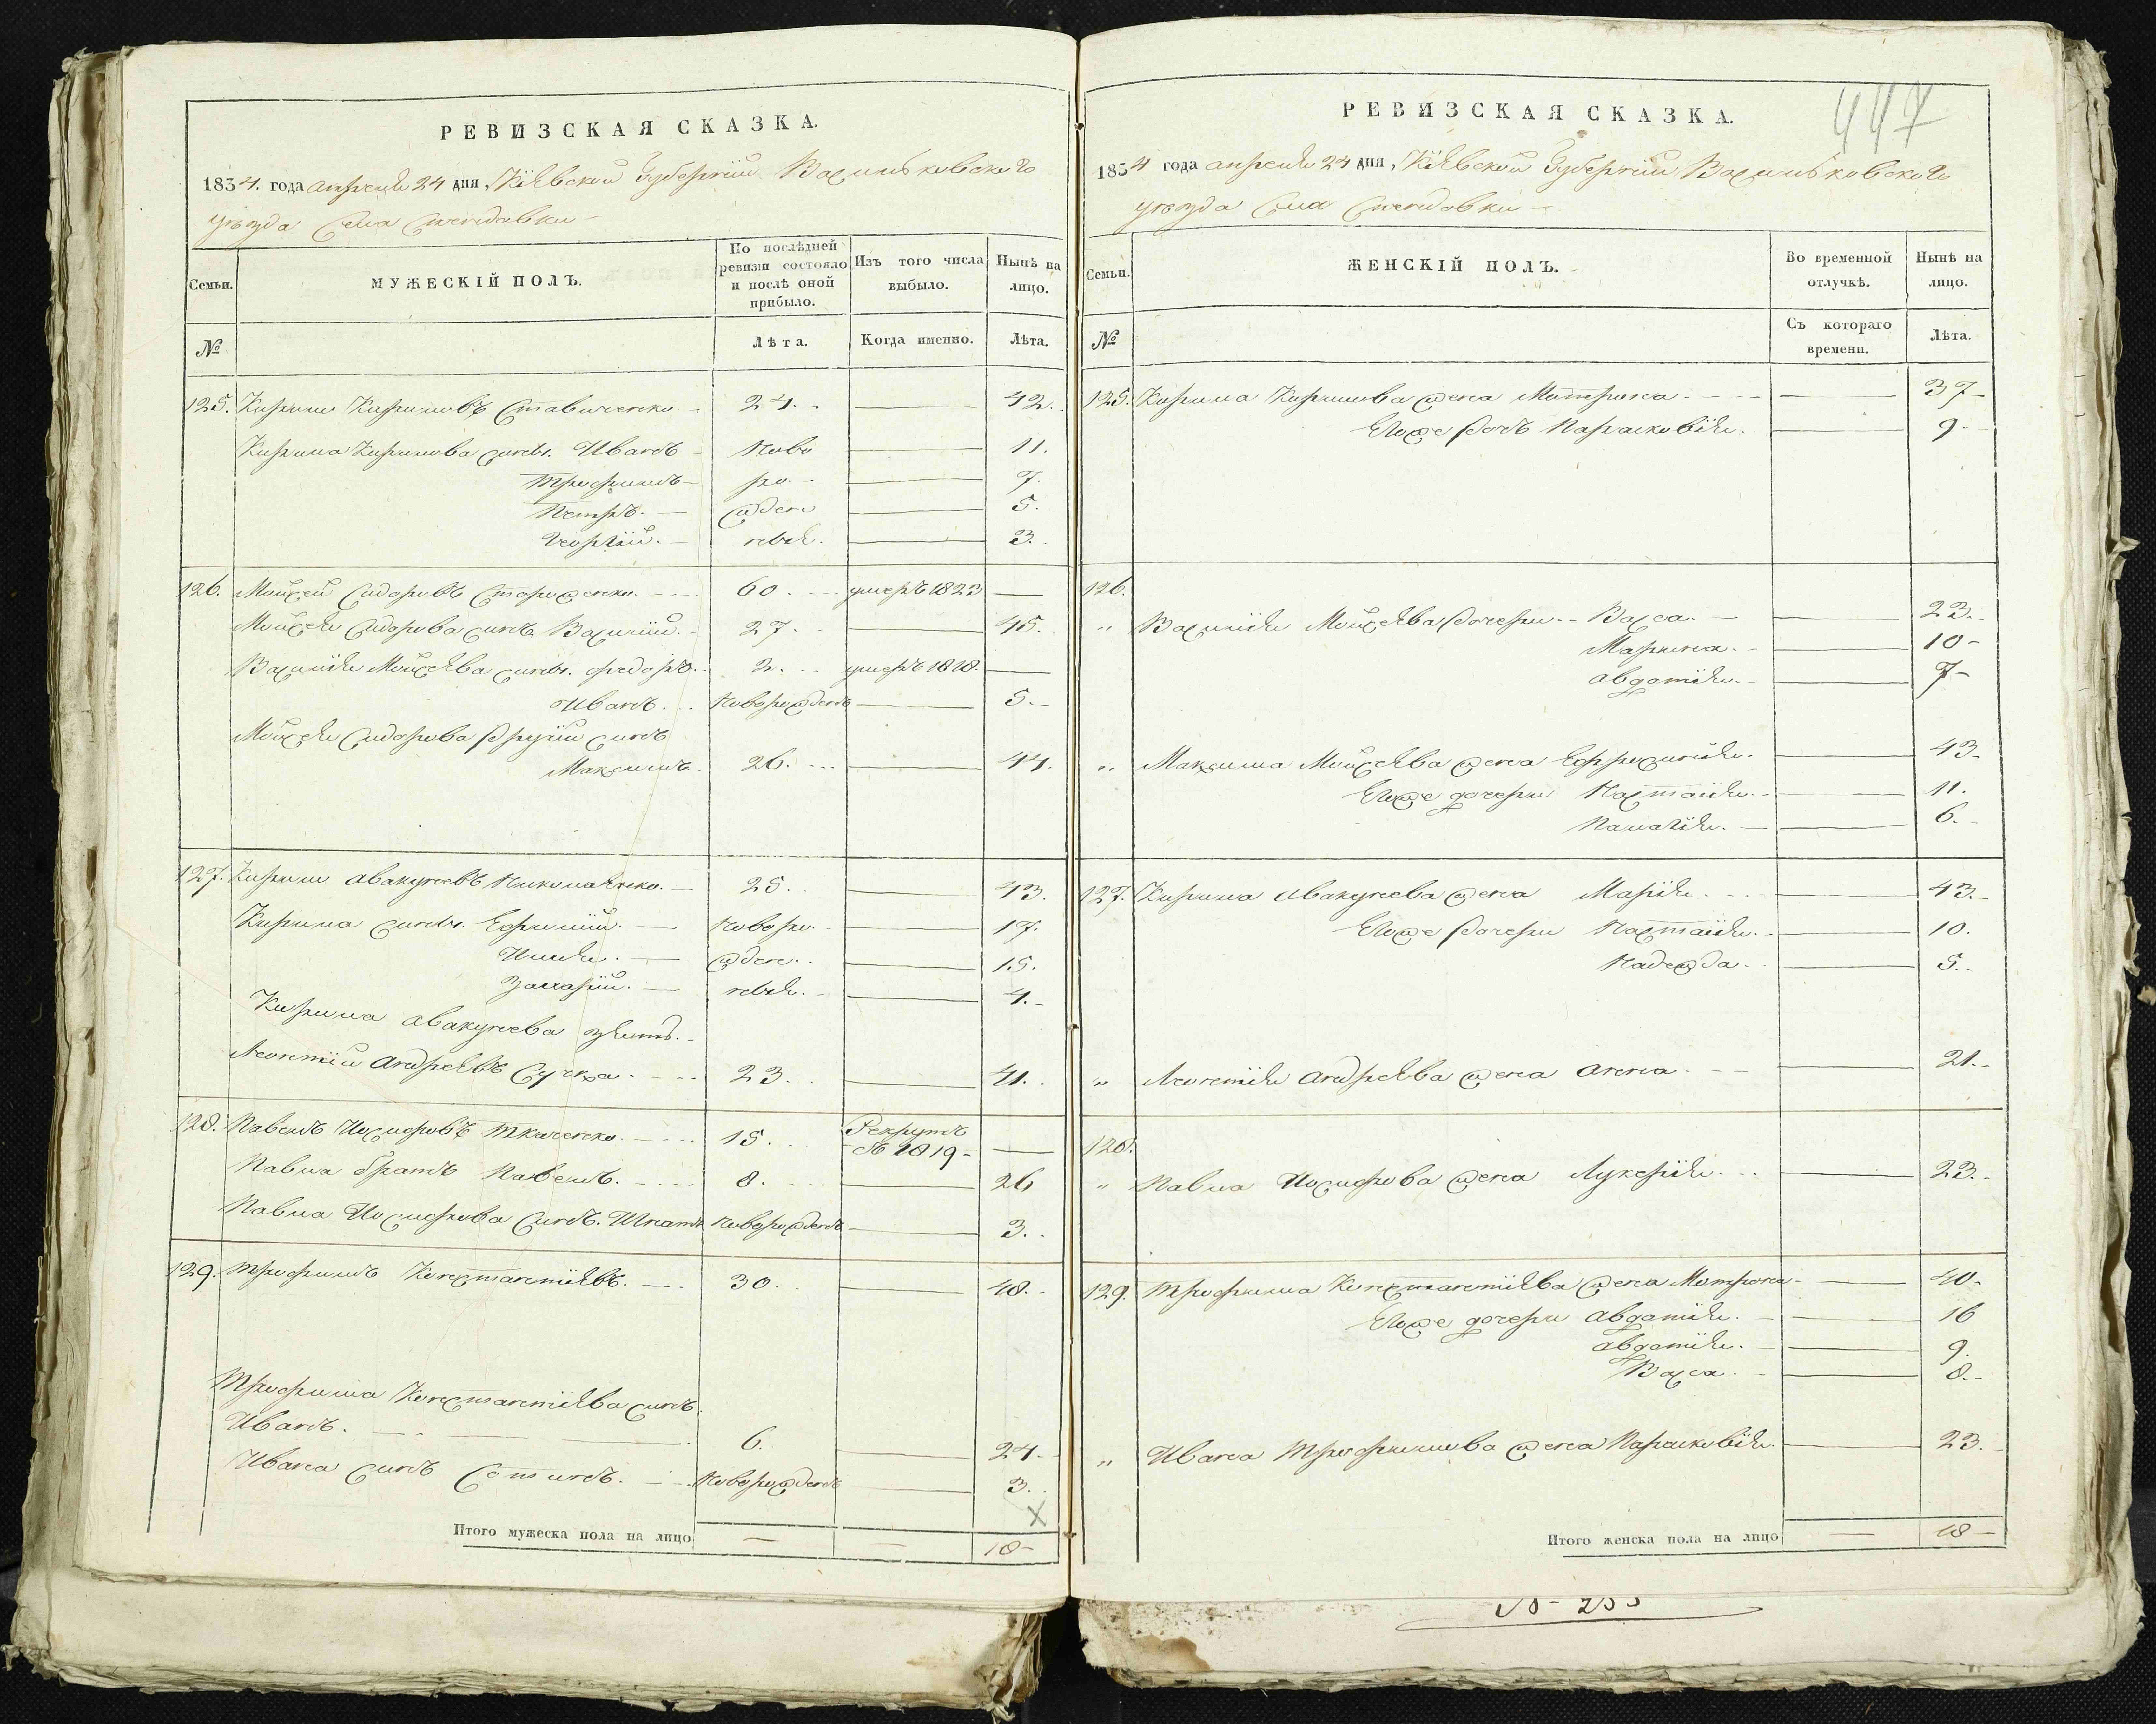 РЕВИЗСКАЯ СКАЗКА.
1834. года апреля 24 дня, Кіевской Губерніи Васильковскаго
уѣзда Села
Семьи.
МУЖЕСКІЙ ПОЛЪ.
По послѣдней ревизіи состояло и послѣ оной прибыло.
Изъ того числа выбыло.
Нынѣ на лицо.
№
Лѣта.
Когда именно.
Лѣта.
125. Кирило Кириловъ Ставиченко. 24. — 42.
Кирила Кирилова сыны. Иванъ. Ново — 11.
Трофимъ ро. — 7.
Петръ. жден — 5.
Георгій. ныя. — 3.
126. Мойсей Сидоровъ Стороженко. 60. умеръ 1823 —
Мойсея Сидорова сынъ Василій. 27. — 45.
Василія Мойсеева сыны. Федоръ. 2. умеръ 1818. —
Иванъ. Новорожденъ — 5.
Мойсея Сидорова другій сынъ
Максимъ. 26. — 44.
127. Кирило Авакумовъ 25. — 43.
Кирила сыны. Ефимій. Новоро — 17.
Илья. жден. — 15.
Захарій. ныя. — 4.
Кирила Авакумова зять.
Леонтій Андреевъ 23. — 41.
128. Павелъ Іосифовъ Ткаченко. 15. Рекрутъ
въ 1819 —
Павла братъ Павелъ. 8. — 26
Павла Іосифова сынъ. Игнатъ Новорожденъ — 3.
129. Трофимъ Константіевъ. 30. — 48.
Трофима Константіева сынъ
Иванъ. 6. — 24.
Ивана сынъ Новорожденъ — 3.
Х
Итого мужеска пола на лицо — — 18
447
РЕВИЗСКАЯ СКАЗКА.
1834 года апреля 24 дня, Кіевской Губерніи Васильковскаго
уѣзда Села
Семьи.
ЖЕНСКІЙ ПОЛЪ.
Во временной отлучкѣ.
Нынѣ на лицо.
№
Съ котораго времени.
Лѣта.
125. Кирила Кирилова жена Мотрона. — 37
Егоже дочь Парасковія. — 9
126.
" Василія Мойсеева дочери Васса. — 23.
Марина. — 10
Авдотія. — 7
" Максима Мойсеева жена Ефросинія. — 43.
Егоже дочери Настасія. — 11.
Палагія. — 6.
127. Кирила Авакумова жена Марія. — 43.
Егоже дочери Настасія. — 10.
Надежда. — 5.
" Леонтія Андреева жена Анна. — 21.
128.
" Павла Іосифова жена Лукерія. — 23.
129. Трофима Константіева жена Мотрона — 40
Егоже дочери Авдотія. — 16
Авдотія. — 9.
Васса. — 8.
" Ивана Трофимова жена Парасковія. — 23.
Итого женска пола на лицо — 18